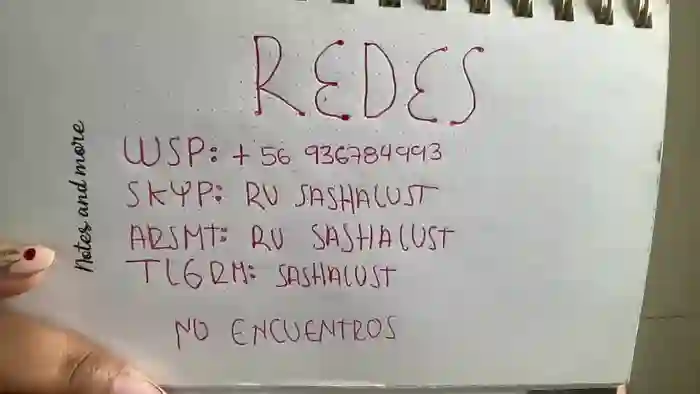 REDES
WSP: + 56 936784993
SKYP: RV SASHALUST
ARSMT: RV SASHALUST
TLGRM: SASHALUST
NO ENCUENTROS
Notes and more